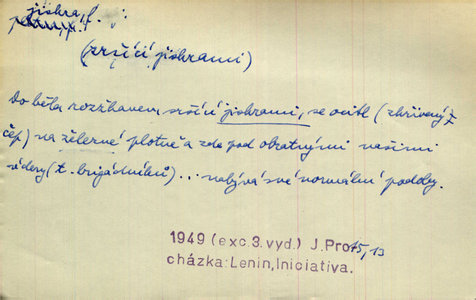 jiskra, f.
(sršící jiskrami)
Do běla rozžhaven, sršící jiskrami, se ocitl (zkřivený
čep) na železné plotně a zde pod obratnými našimi
údery (t. brigádníků)... nabývá své normální podoby.
1949 (exc.3.vyd.) J.Pro- 15, 13
cházka:Lenin,Iniciativa.